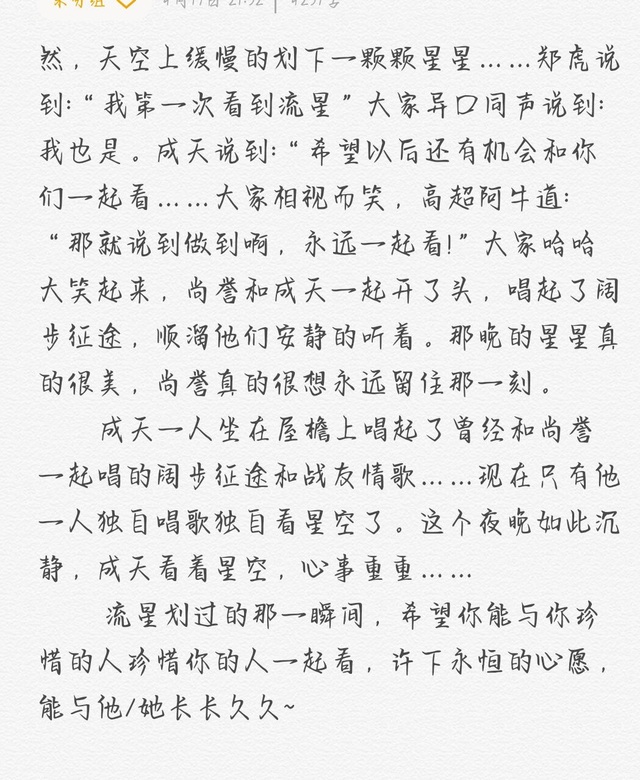 然，天空上缓慢的划下一颗颗星星……郑虎说
到:“我第一次看到流星”大家异口同声说到:
我也是。成天说到:“希望以后还有机会和你
们一起看……大家相视而笑，高超阿牛道:
“那就说到做到啊，永远一起看!”大家哈哈
大笑起来，尚誉和成天一起开了头，唱起了阔
步征途，顺溜他们安静的听着。那晚的星星真
的很美，尚誉真的很想永远留住那一刻。
成天一人坐在屋檐上唱起了曾经和尚誉
一起唱的阔步征途和战友情歌……现在只有他
一人独自唱歌独自看星空了。这个夜晚如此沉
静，成天看着星空，心事重重……
流星划过的那一瞬间，希望你能与你珍
惜的人珍惜你的人一起看，许下永恒的心愿，
能与他/她长长久久~